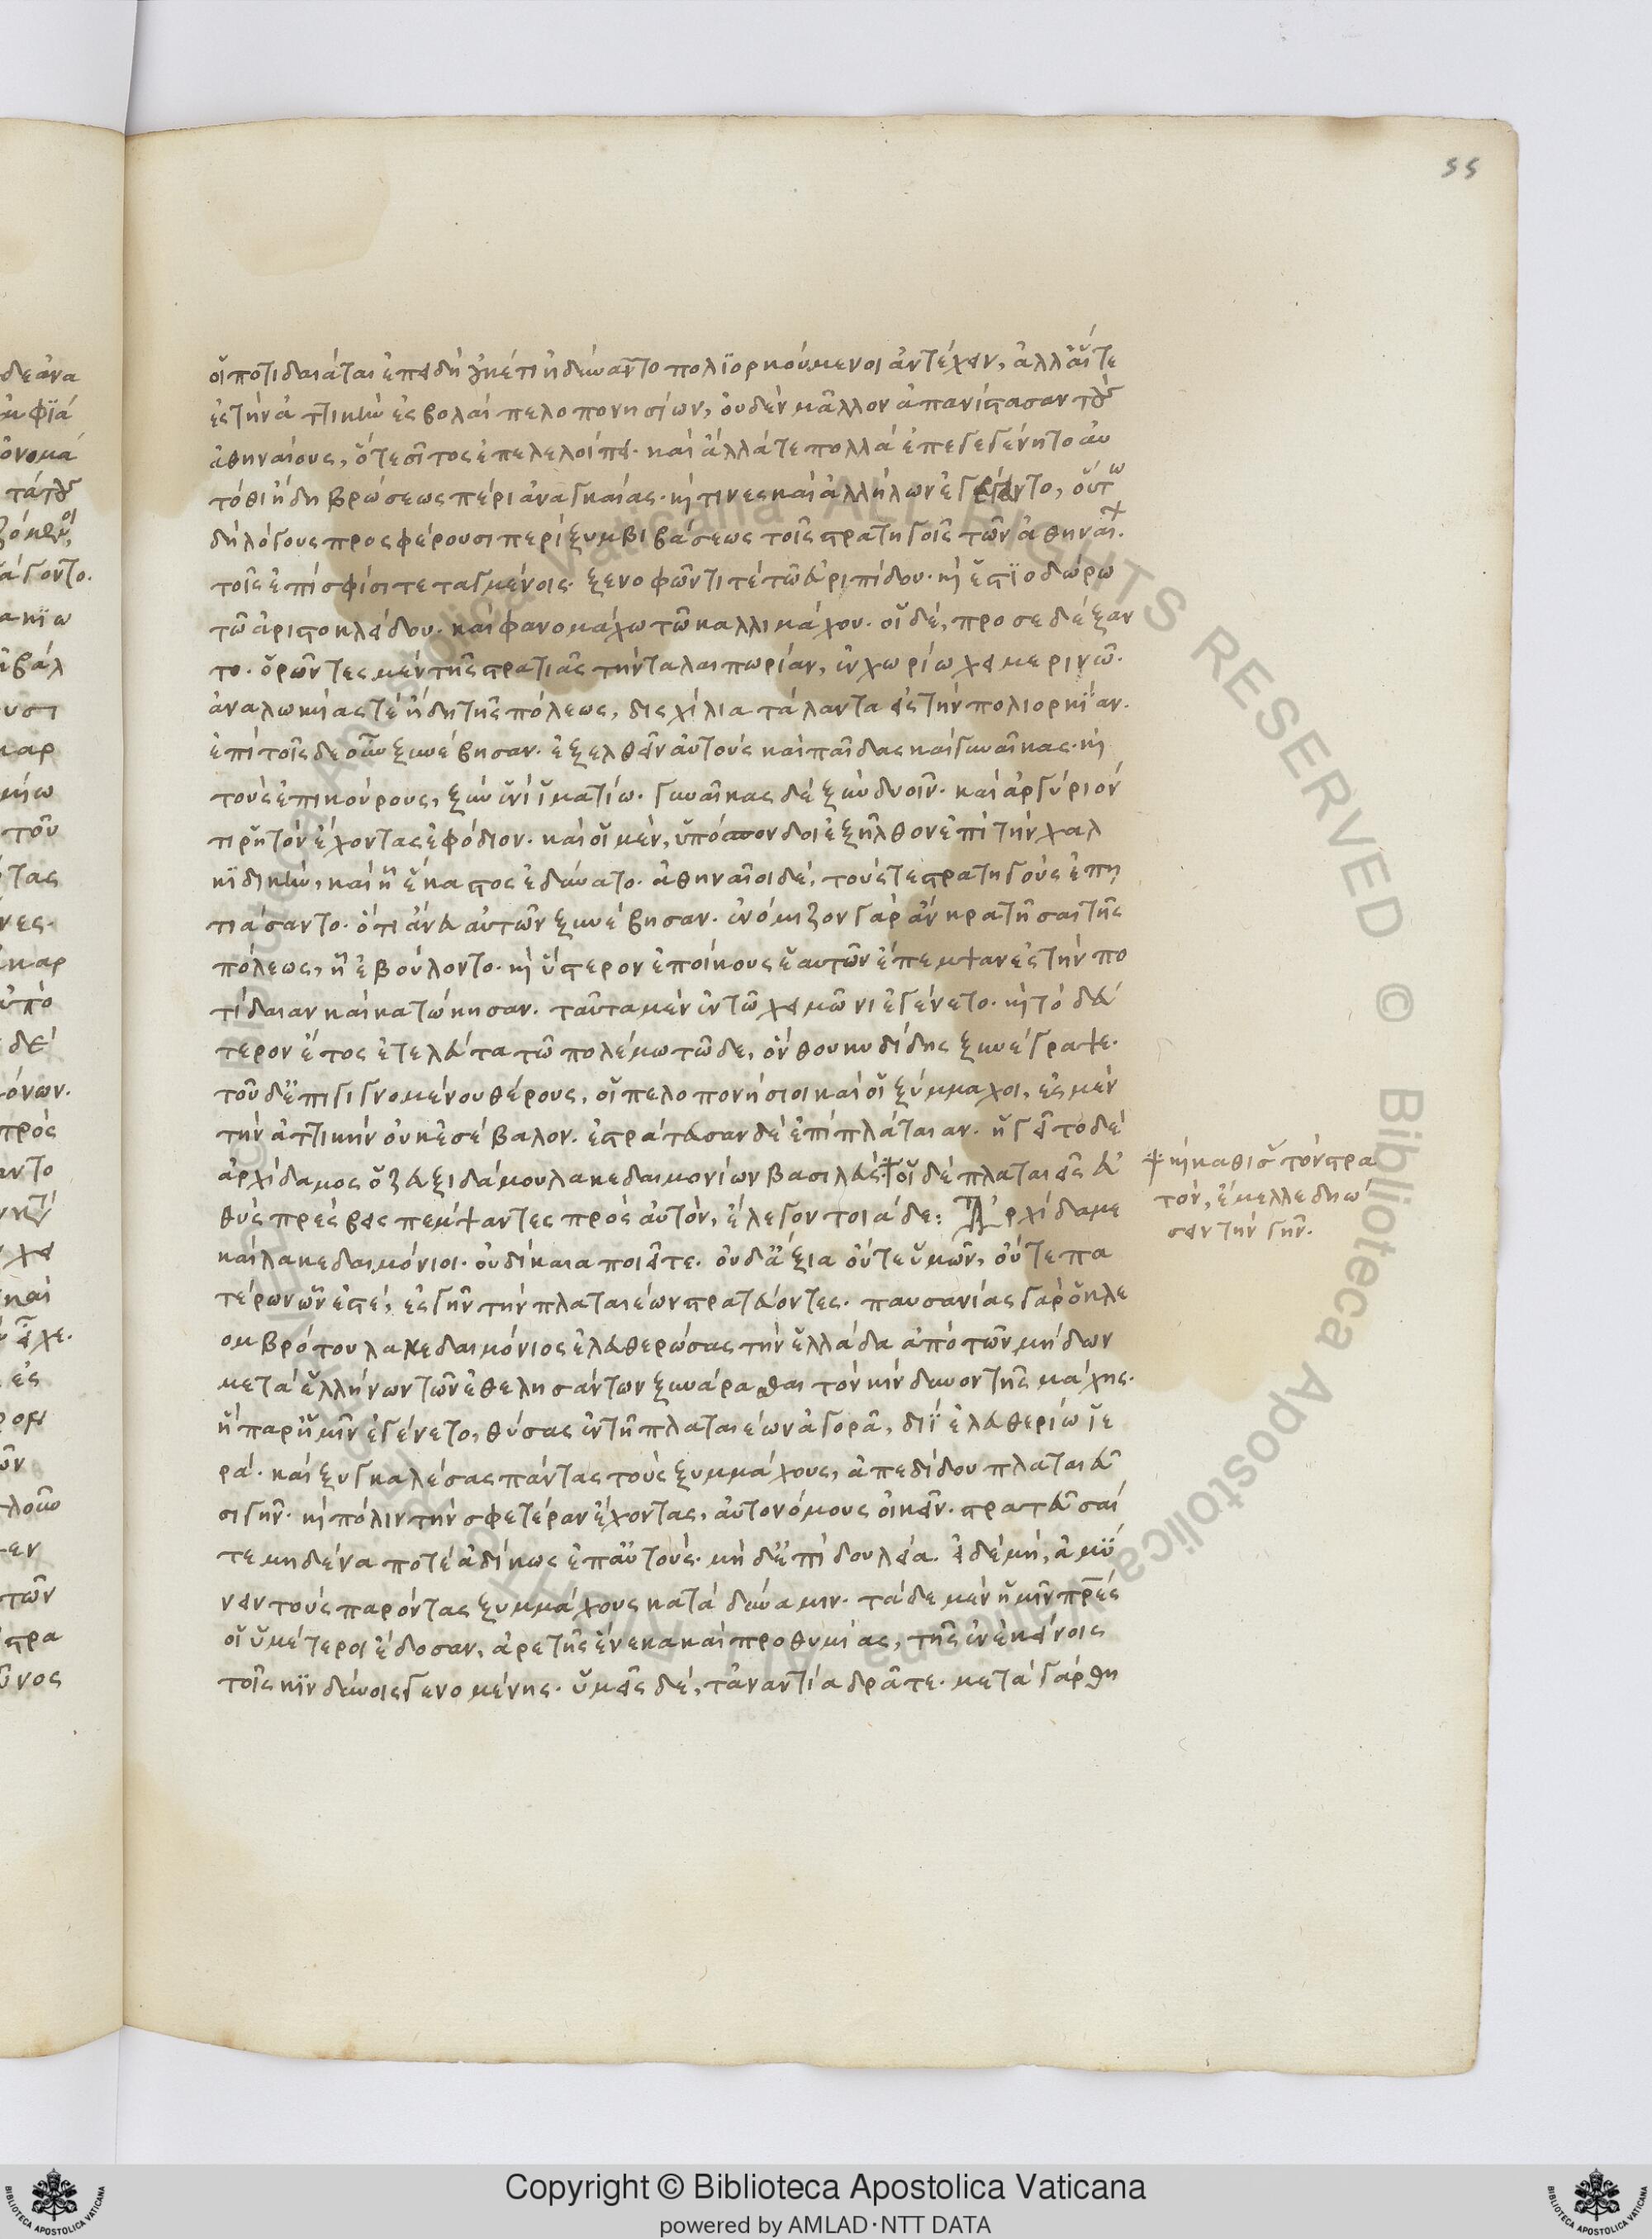 55
οἱ ποτιδαιάται ἐπειδὴ οὐκέτι ἠδύναντο πολιορκούμενοι ἀντέχειν, ἀλλ' αἵ τε
ἐς τὴν ἀττικὴν ἐσβολαὶ πελοπονησίων, οὐδὲν μᾶλλον ἀπανίστασαν τοὺς
ἀθηναίους, ὅ τε σῖτος ἐπελελοίπει. καὶ ἄλλά τε πολλὰ ἐπεγεγένητο αὐ
τόθι ἤδη βρώσεως πέρι ἀναγκαίας. καί τινες καὶ ἀλλήλων ἐγέγευντο, οὕτω
δὴ λόγους προσφέρουσι περὶ ξυμβιβάσεως τοῖς στρατηγοῖς τῶν ἀθηναί.
τοῖς ἐπὶ σφίσι τεταγμένοις. ξενοφῶντι τὲ τῶ εὐριπίδου. καὶ ἑστιοδώρω
τῶ ἀριστοκλείδου. καὶ φανομάχω τῶ καλλιμάχου. οἱ δὲ, προσεδέξαν
το. ὁρῶντες μὲν τῆς στρατιᾶς τὴν ταλαιπωρίαν, ἐν χωρίω χειμερινῶ.
ἀναλωκυίας τὲ ἤδη τῆς πόλεως, δισχίλια τάλαντα εἰς τὴν πολιορκίαν.
ἐπὶ τοῖς δε οὖν ξυνέβησαν. ἐξελθεῖν αὐτοὺς καὶ παῖδας καὶ γυναῖκας. καὶ
τοὺς ἐπικούρους, ξὺν ἑνὶ ἱματίω. γυναῖκας δὲ ξὺν δυοῖν. καὶ ἀργύριόν
τι ῥητὸν ἔχοντας ἐφόδιον. καὶ οἱ μὲν, ὑπόσπονδοι ἐξῆλθον ἐπὶ τὴν χαλ
κιδικὴν, καὶ ἧ ἕκαστος ἐδύνατο. ἀθηναῖοι δὲ, τούς τε στρατηγοὺς ἐπῃ
τιάσαντο. ὅτι ἄνευ αὐτῶν ξυνέβησαν. ἐνόμιζον γὰρ ἂν κρατῆσαι τῆς
πόλεως, ἧ ἐβούλοντο. καὶ ὕστερον ἐποίκους ἑαυτῶν ἔπεμψαν ἐς τὴν πο
τίδαιαν καὶ κατώκησαν. ταῦτα μὲν ἐν τῶ χειμῶνι ἐγένετο. καὶ τὸ δεύ
τερον ἔτος ἐτελεύτα τῶ πολέμω τῶδε, ὃν θουκυδίδης ξυνέγραψε.
τοῦ δ' ἐπιγιγνομένου θέρους, οἱ πελοπονήσιοι καὶ οἱ ξύμμαχοι, ἐς μὲν
τὴν ἀττικὴν οὐκ ἐσέβαλον. ἐστράτευσαν δὲ ἐπὶ πλάταιαν. ἡγεῖτο δὲ
ἀρχίδαμος ὁ ζευξιδάμου λακεδαιμονίων βασιλεύς. οἱ δὲ πλαταιεῖς εὐ
θὺς πρέσβεις πέμψαντες πρὸς αὐτὸν, ἔλεγον τοιάδε: Ἀρχίδαμε
καὶ λακεδαιμόνιοι. οὐ δίκαια ποιεῖτε. οὐδ' ἄξια οὔτε ὑμῶν, οὔτε πα
τέρων ὧν ἐστέ, ἐς γῆν τὴν πλαταιέων στρατεύοντες. παυσανίας γὰρ ὁ κλε
ομβρότου λακεδαιμόνιος ἐλευθερώσας τὴν ἑλλάδα ἀπὸ τῶν μήδων
μετὰ ἑλλήνων τῶν ἐθελησάντων ξυνάρασθαι τὸν κίνδυνον τῆς μάχης.
ἣ παρ' ἡμῖν ἐγένετο, θύσας ἐν τῆ πλαταιέων ἀγορᾶ, διῒ ἐλευθερίω ἱε
ρά. καὶ ξυγκαλέσας πάντας τοὺς ξυμμάχους, ἀπεδίδου πλαταιεῦ
σι γῆν. καὶ πόλιν τὴν σφετέραν ἔχοντας, αὐτονόμους οἰκεῖν. στρατεῦσαί
τε μηδένα ποτὲ ἀδίκως ἐπ' αὐτούς. μὴ δ' ἐπὶ δουλεία. εἰ δὲ μὴ, ἀμύ
νειν τοὺς παρόντας ξυμμάχους κατὰ δύναμιν. τάδε μὲν ἡμῖν πρες
οἱ ὑμέτεροι ἔδοσαν, ἀρετῆς ἕνεκα καὶ προθυμίας, τῆς ἐν ἐκείνοις
τοῖς κινδύνοις γενομένης. ὑμεῖς δὲ, τἀναντία δρᾶτε. μετὰ γὰρ θη
καὶ καθίσας τὸν στρα
τὸν, ἔμελλε δηώ
σειν τὴν γῆν.
Copyright © Biblioteca Apostolica Vaticana
powered by AMLAD·NTT DATA